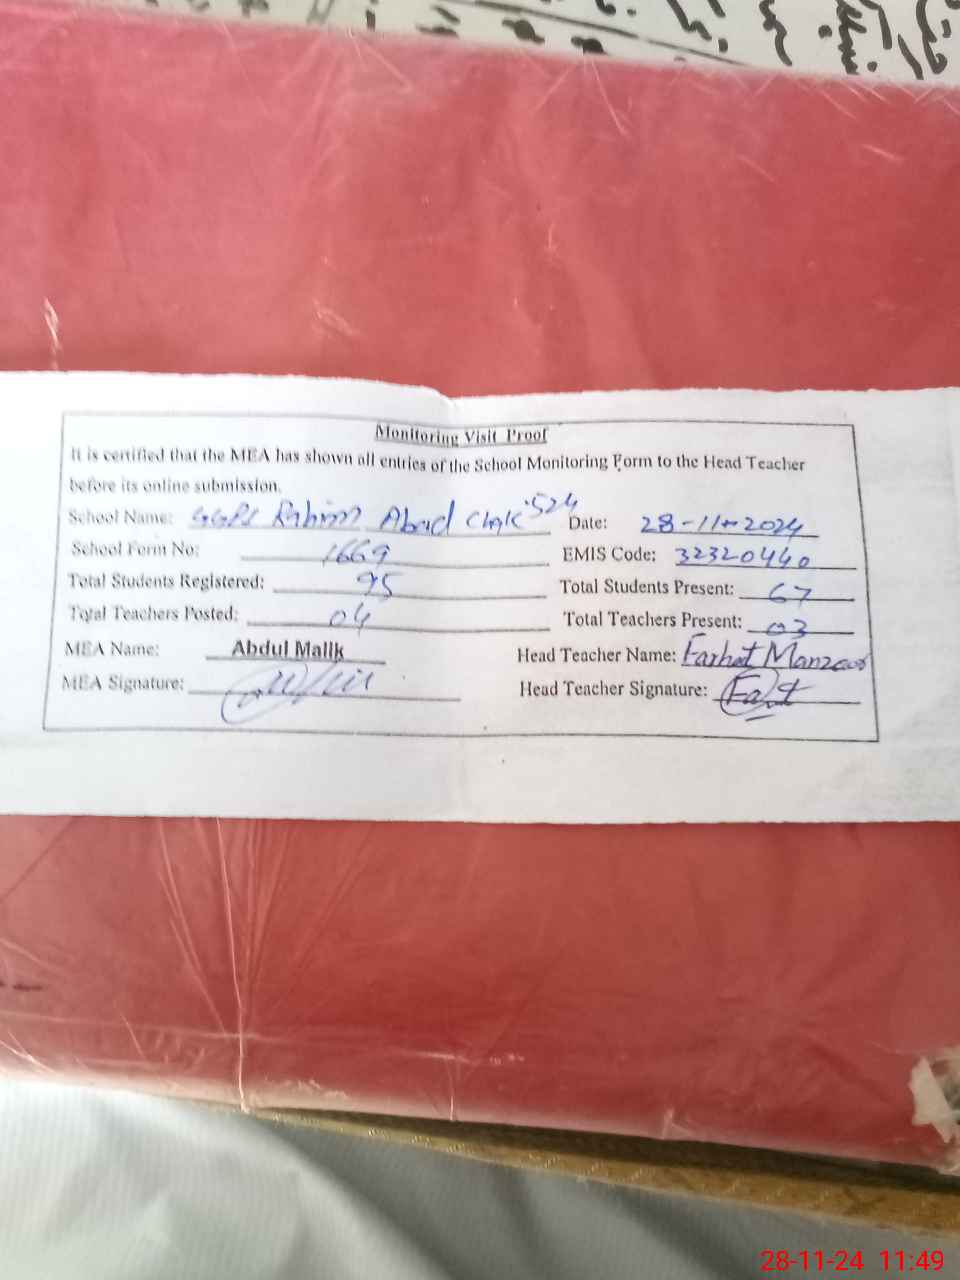 Monitoring Visit Proof
It is certified that the MEA has shown all entries of the School Monitoring Form to the Head Teacher
before its online submission.
School Name: GGPS Rahim Abad Chak 524 Date: 28-11-2024
School Form No: 1669 EMIS Code: 32320440
Total Students Registered: 95 Total Students Present: 67
Total Teachers Posted: 04 Total Teachers Present: 03
MEA Name: Abdul Malik Head Teacher Name: Farhat Manzoor
MEA Signature: Head Teacher Signature:
28-11-24 11:49